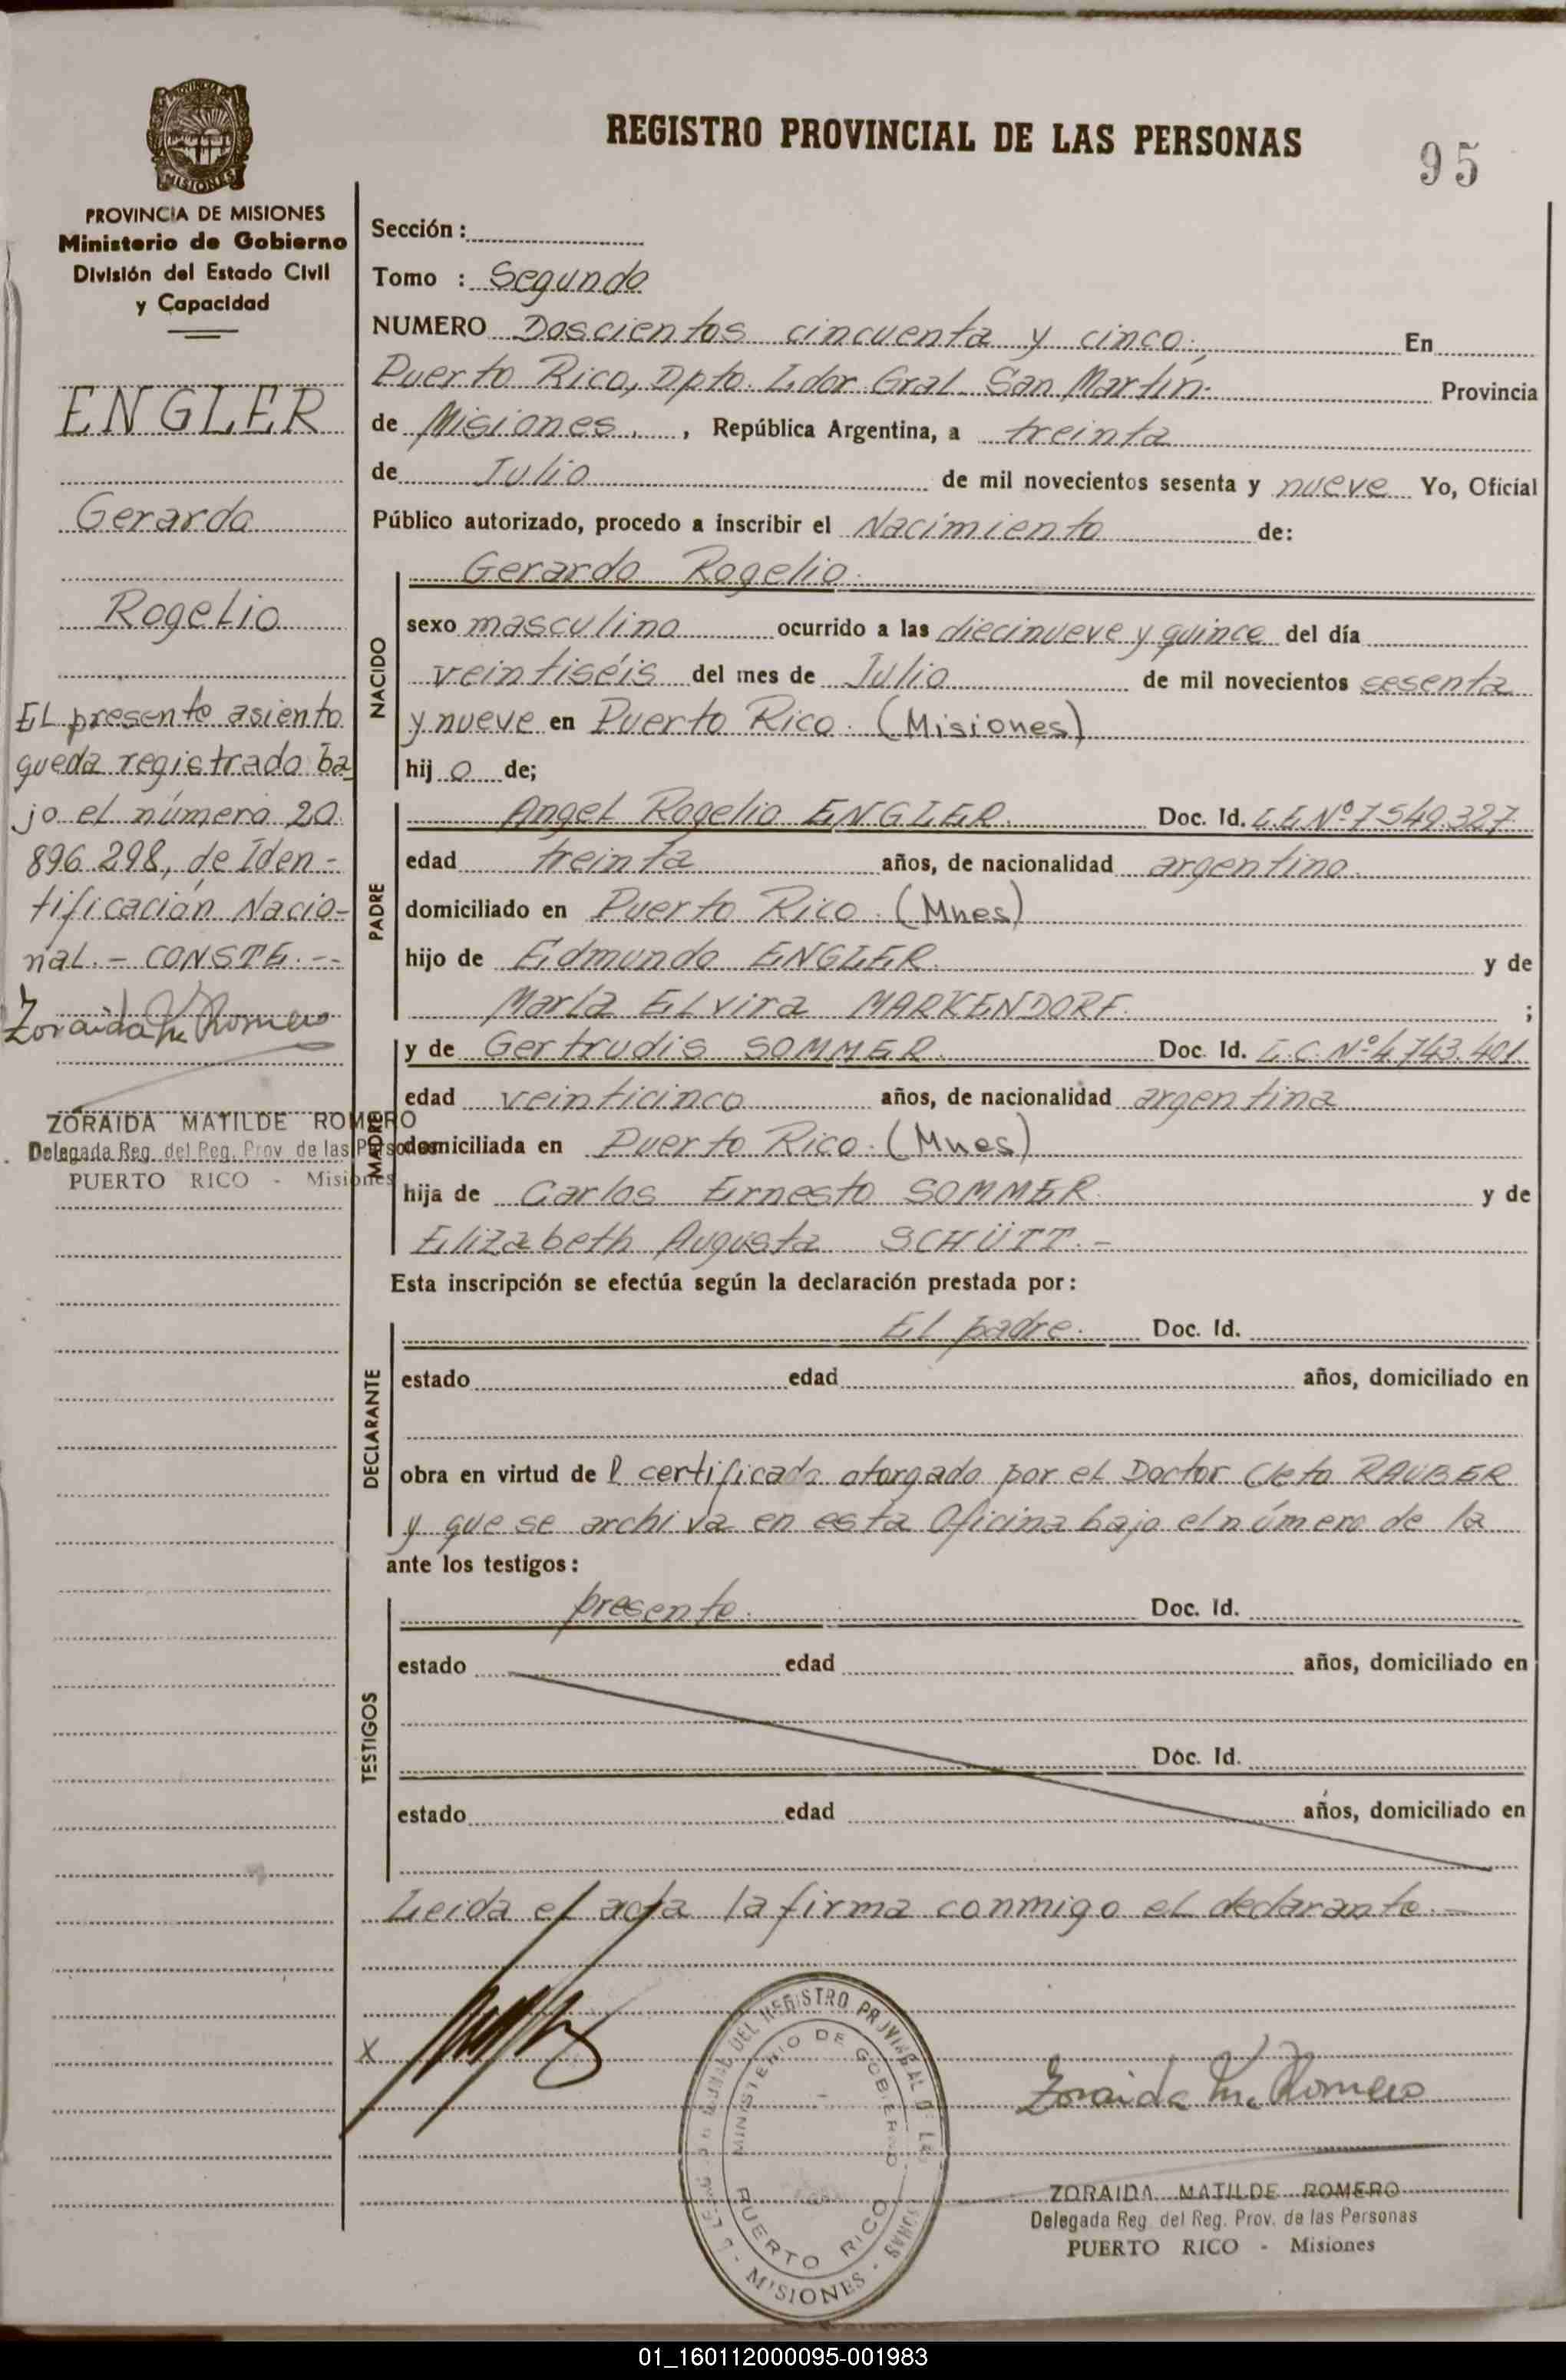 REGISTRO PROVINCIAL DE LAS PERSONAS
95
MISIONES
PROVINCIA DE MISIONES
Ministerio de Gobierno
División del Estado Civil
y Capacidad
ENGLER
Gerardo
Rogelio
El presente asiento
queda registrado ba
jo el número 20.
896.298, de Iden-
tificación Nacio-
nal.- CONSTE.--
Zoraida M. Romero
ZORAIDA MATILDE ROMERO
Delegada Reg. del Reg. Prov. de las Personas
PUERTO RICO - Misiones
Sección :
Tomo : Segundo
NUMERO Doscientos cincuenta y cinco. En
Puerto Rico, Dpto. Ldor Gral. San Martín. Provincia
de Misiones. , República Argentina, a treinta
de Julio de mil novecientos sesenta y nueve Yo, Oficial
Público autorizado, procedo a inscribir el Nacimiento de:
NACIDO
Gerardo Rogelio.
sexo masculino ocurrido a las diecinueve y quince del día
veintiséis del mes de Julio de mil novecientos sesenta
y nueve en Puerto Rico. (Misiones)
hij o de;
PADRE
Angel Rogelio ENGLER. Doc. Id. L.E.Nº 7.549.327
edad treinta años, de nacionalidad argentino.
domiciliado en Puerto Rico. (Mnes)
hijo de Edmundo ENGLER. y de
María Elvira MARKENDORF. ;
MADRE
y de Gertrudis SOMMER. Doc. Id. L.C.Nº 4.743.401.
edad veinticinco años, de nacionalidad argentina
domiciliada en Puerto Rico. (Mnes)
hija de Carlos Ernesto SOMMER. y de
Elizabeth Augusta SCHÜTT.-
Esta inscripción se efectúa según la declaración prestada por:
DECLARANTE
El padre. Doc. Id.
estado edad años, domiciliado en
obra en virtud de l certificado otorgado por el Doctor Cleto RAUBER
y que se archiva en esta Oficina bajo el número de la
ante los testigos:
TESTIGOS
presente. Doc. Id.
estado edad años, domiciliado en
Doc. Id.
estado edad años, domiciliado en
Leída el acta la firma conmigo el declarante.-
X
DEL REGISTRO PROVINCIAL DE LAS
MINISTERIO DE GOBIERNO
PUERTO RICO
- MISIONES -
Zoraida M. Romero
ZORAIDA MATILDE ROMERO
Delegada Reg. del Reg. Prov. de las Personas
PUERTO RICO - Misiones
01_160112000095-001983